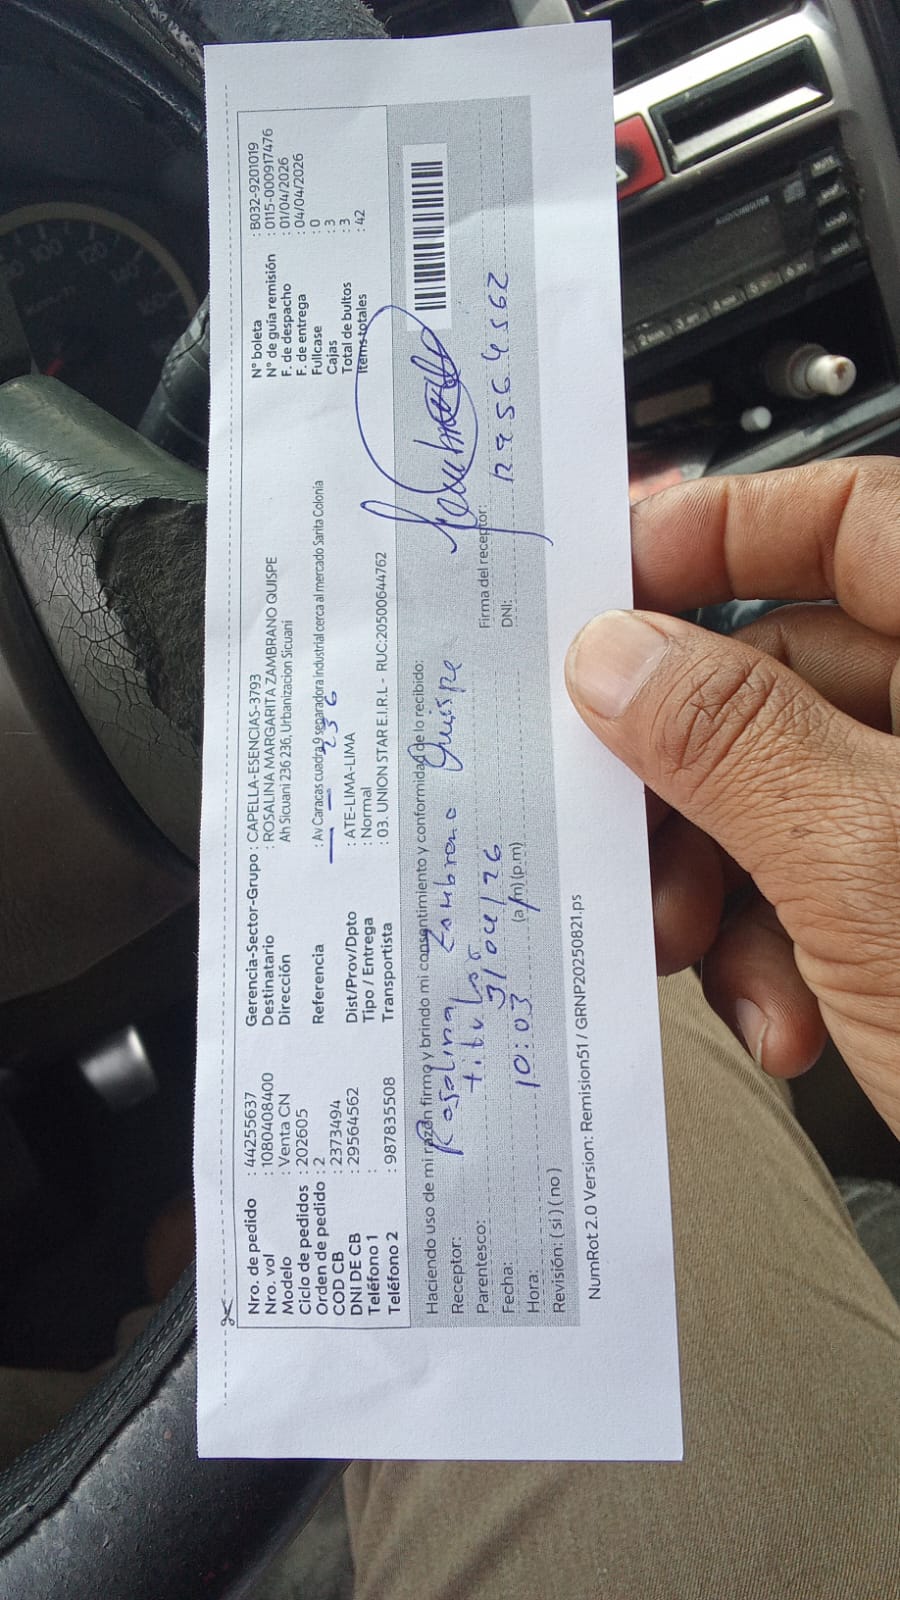 Nro. de pedido : 44255637
Nro. vol : 1080408400
Modelo : Venta CN
Ciclo de pedidos : 202605
Orden de pedido : 2
COD CB : 2373494
DNI DE CB : 29564562
Teléfono 1 :
Teléfono 2 : 987835508
Gerencia-Sector-Grupo : CAPELLA-ESENCIAS-3793
Destinatario : ROSALINA MARGARITA ZAMBRANO QUISPE
Dirección Ah Sicuani 236 236, Urbanizacion Sicuani
Referencia : Av Caracas cuadra 9 separadora industrial cerca al mercado Sarita Colonia
236
Dist/Prov/Dpto : ATE-LIMA-LIMA
Tipo / Entrega : Normal
Transportista : 03. UNION STAR E.I.R.L - RUC:20500644762
N° boleta : B032-9201019
N° de guía remisión : 0115-000917476
F. de despacho : 01/04/2026
F. de entrega : 04/04/2026
Fullcase : 0
Cajas : 3
Total de bultos : 3
Items totales : 42
Haciendo uso de mi razón firmo y brindo mi consentimiento y conformidad de lo recibido:
Receptor: Rosalina Zambrano Quispe
Parentesco: titular
Fecha: 3/04/26
Hora: 10:03 (a.m) (p.m)
Revisión: ( si ) ( no )
Firma del receptor:
DNI: 29564562
NumRot 2.0 Version: Remision51 / GRNP20250821.ps